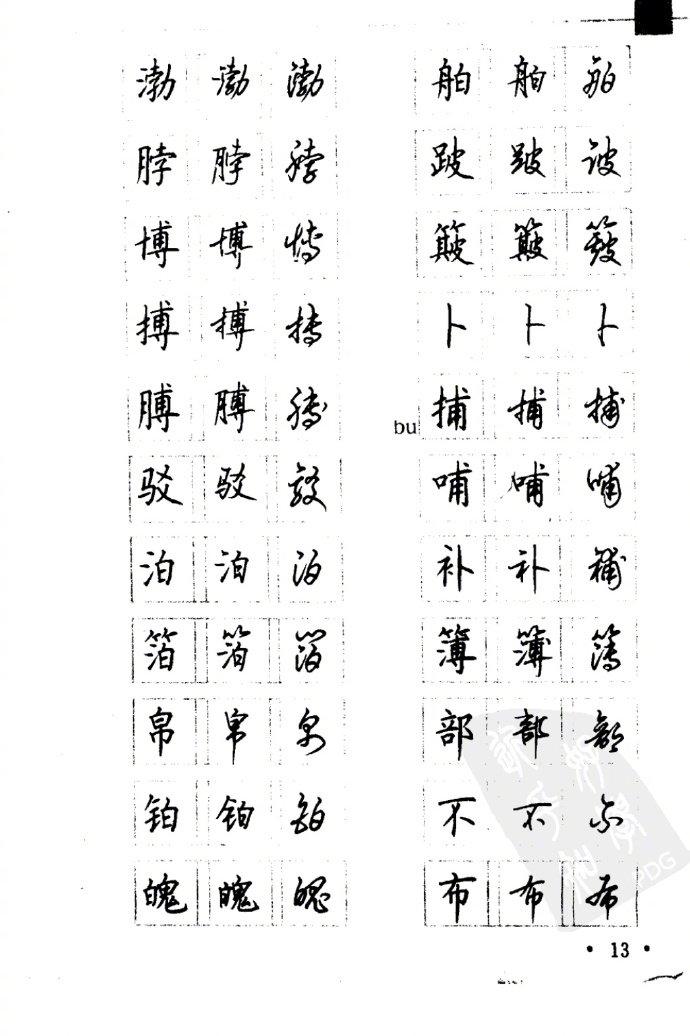 渤 渤 渤 舶 舶 舶
脖 脖 脖 跛 跛 跛
博 博 博 簸 簸 簸
搏 搏 搏 卜 卜 卜
膊 膊 膊 bu 捕 捕 捕
驳 驳 驳 哺 哺 哺
泊 泊 泊 补 补 補
箔 箔 箔 簿 簿 簿
帛 帛 帛 部 部 部
铂 铂 铂 不 不 不
魄 魄 魄 布 布 布
• 13 •